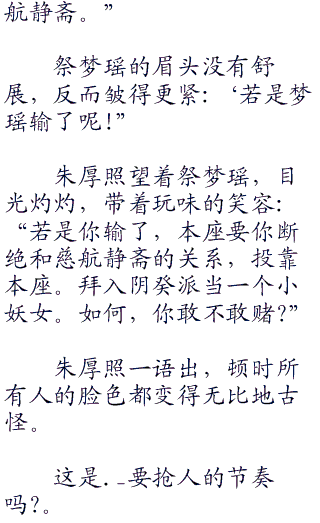 航静斋。”
祭梦瑶的眉头没有舒
展，反而皱得更紧：‘若是梦
瑶输了呢!”
朱厚照望着祭梦瑶，目
光灼灼，带着玩味的笑容：
“若是你输了，本座要你断
绝和慈航静斋的关系，投靠
本座。拜入阴癸派当一个小
妖女。如何，你敢不敢赌?”
朱厚照一语出，顿时所
有人的脸色都变得无比地古
怪。
这是._要抢人的节奏
吗?。